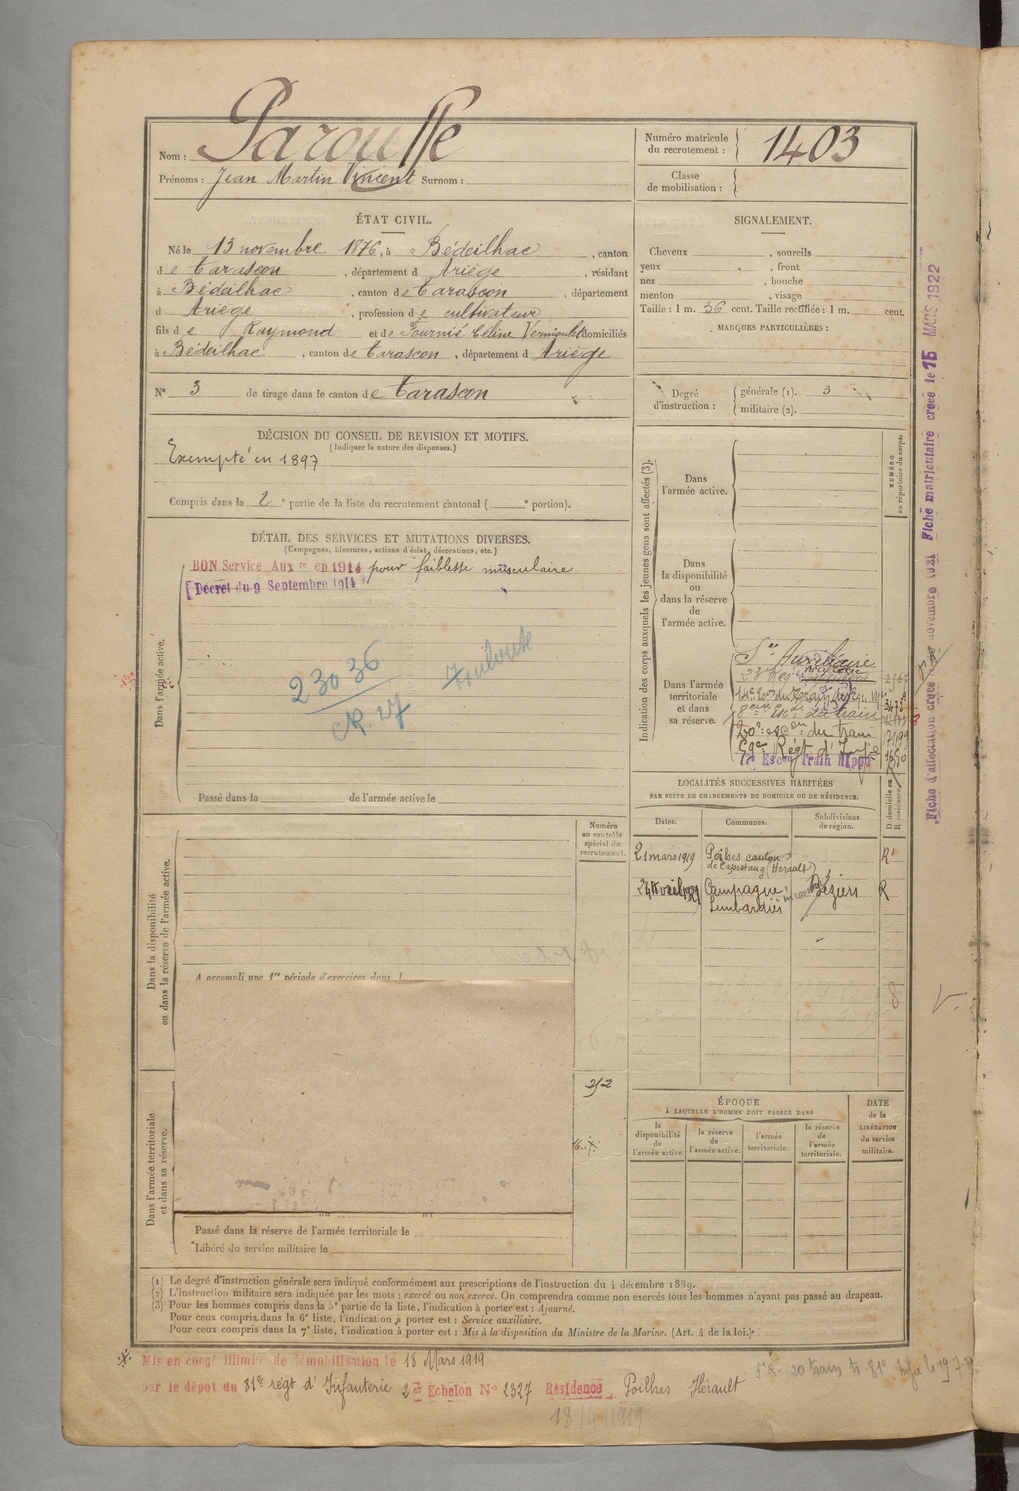 Nom : Parouffe
Prénoms : Jean Martin Vincent Surnom :
Numéro matricule du recrutement : 1403
Classe de mobilisation :
ÉTAT CIVIL.
Né le 13 novembre 1876, à Bédeilhac, canton
de Tarascon, département d Ariège, résidant
à Bédeilhac, canton de Tarascon, département
d Ariège, profession de cultivateur
fils de Raymond et de Fournié Celine domiciliés
à Bédeilhac, canton de Tarascon, département d Ariège
N° 3 de tirage dans le canton de Tarascon
SIGNALEMENT.
Cheveux , sourcils
yeux , front
nez , bouche
menton , visage
Taille : 1 m. 36 cent. Taille rectifiée : 1 m. cent.
MARQUES PARTICULIÈRES :
Degré d'instruction : générale (1). 3
militaire (2).
DÉCISION DU CONSEIL DE REVISION ET MOTIFS.
(Indiquer la nature des dispenses.)
Exempté en 1897
Compris dans la 2e partie de la liste du recrutement cantonal ( e portion).
DÉTAIL DES SERVICES ET MUTATIONS DIVERSES.
(Campagnes, blessures, actions d'éclat, décorations, etc.)
BON Service Auxre en 1914 pour faiblesse musculaire
[Décret du 9 Septembre 1914
230 36
Toulouse
Dans l'armée active.
Passé dans la de l'armée active le
Indication des corps auxquels les jeunes gens sont affectés (3).
NUMÉRO au répertoire du corps.
Dans l'armée active.
Dans la disponibilité ou dans la réserve de l'armée active.
Dans l'armée territoriale et dans sa réserve.
Sce Auxiliaire
20e esc on du train
Régt d'Infie
Escon Train Hippo
Fiche matriculaire créée le 15 MARS 1922
LOCALITÉS SUCCESSIVES HABITÉES
PAR SUITE DE CHANGEMENTS DE DOMICILE OU DE RÉSIDENCE.
Dates. Communes. Subdivisions de région. D domicile ou R résidence.
21 mars 1919 Poilhes canton de Capestang (Herault) R
Campagne Lumbardiès Béziers R
Numéro au contrôle spécial du recrutement.
Dans la disponibilité ou dans la réserve de l'armée active.
A accompli une 1re période d'exercices dans l
Dans l'armée territoriale et dans sa réserve.
Passé dans la réserve de l'armée territoriale le
Libéré du service militaire le
ÉPOQUE
À LAQUELLE L'HOMME DOIT PASSER DANS
la disponibilité de l'armée active.
la réserve de l'armée active.
l'armée territoriale.
la réserve de l'armée territoriale.
DATE de la LIBÉRATION du service militaire.
(1) Le degré d'instruction générale sera indiqué conformément aux prescriptions de l'instruction du 4 décembre 1889.
(2) L'instruction militaire sera indiquée par les mots : exercé ou non exercé. On comprendra comme non exercés tous les hommes n'ayant pas passé au drapeau.
(3) Pour les hommes compris dans la 5e partie de la liste, l'indication à porter est : Ajourné.
Pour ceux compris dans la 6e liste, l'indication à porter est : Service auxiliaire.
Pour ceux compris dans la 7e liste, l'indication à porter est : Mis à la disposition du Ministre de la Marine. (Art. 4 de la loi.)
Mis en congé illimité de démobilisation le 18 Mars 1919
par le dépôt du 81e régt d'Infanterie 2e Echelon N° 2327 Résidence Poilhes Hérault
18/4/1919